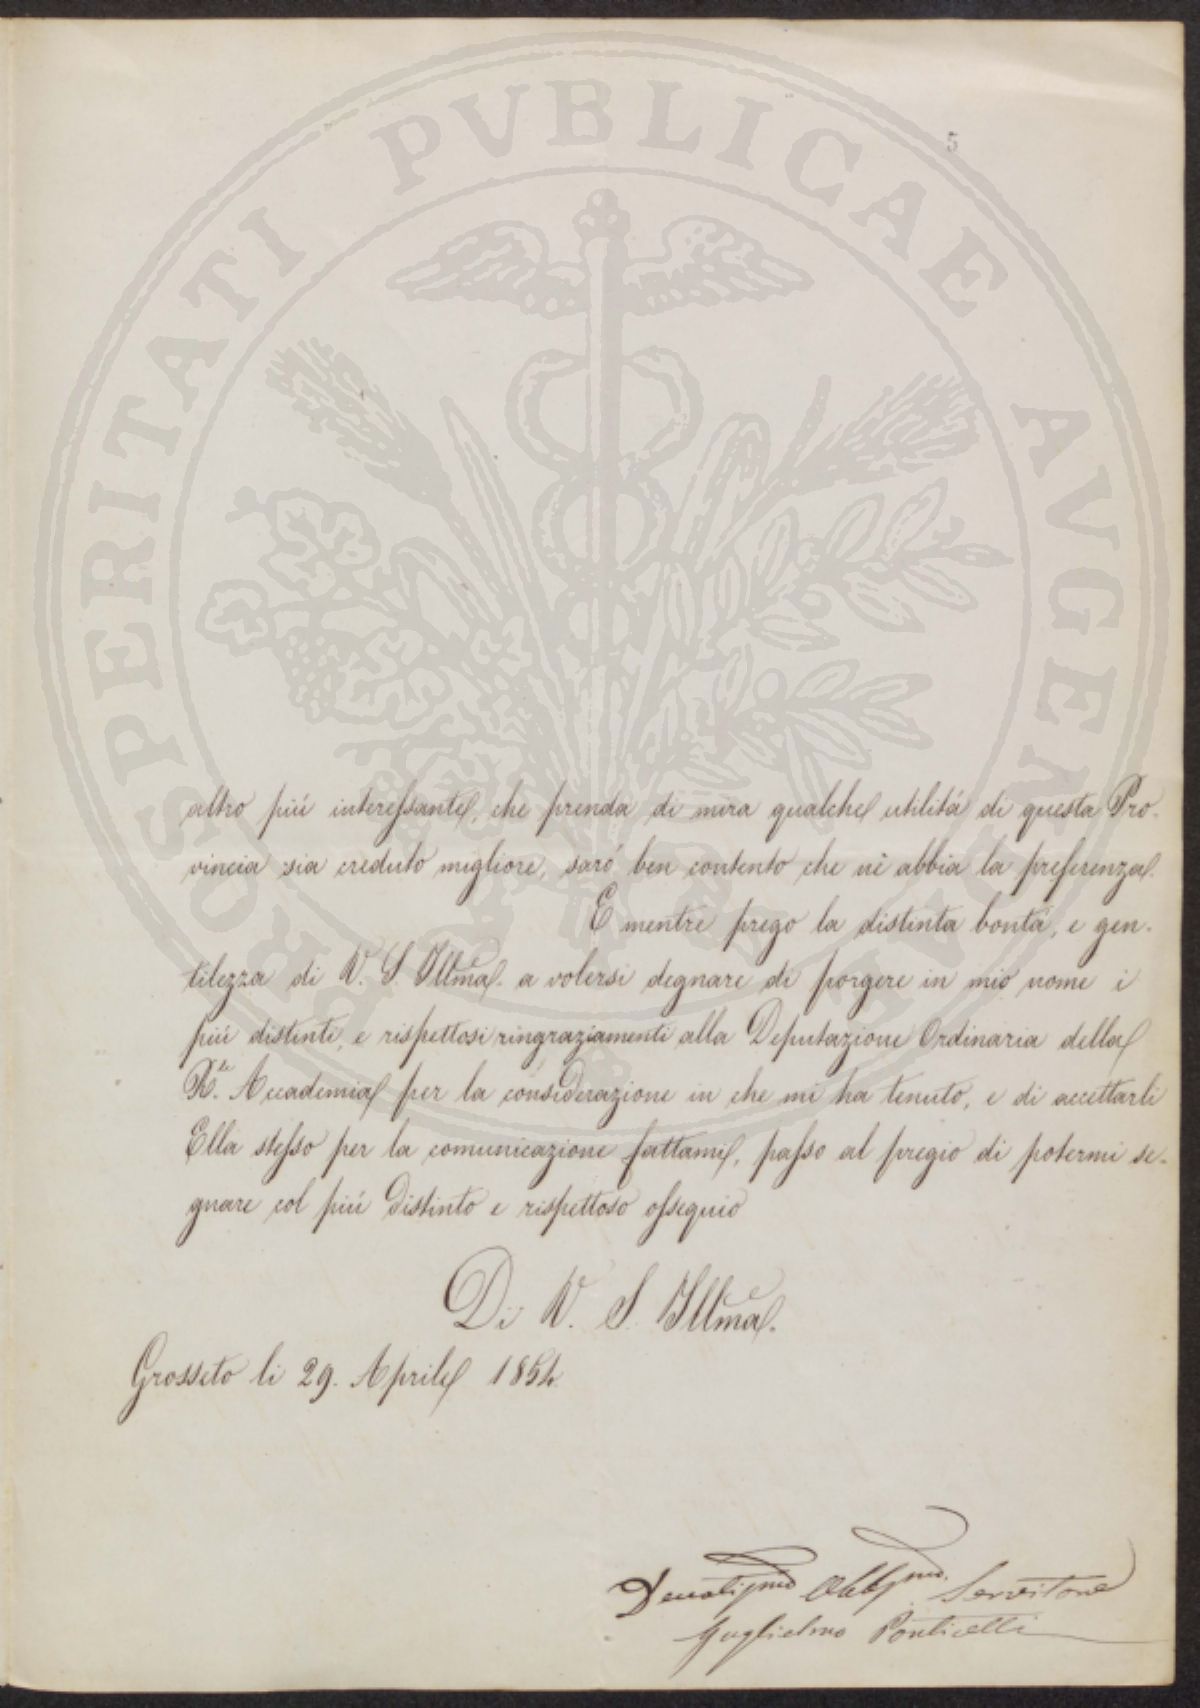 PROSPERITATI PVBLICAE AVGENDAE
5
altro piú interessante, che prenda di mira qualche utilitá di questa Pro-
vincia sia creduto migliore, saró ben contento che ne abbia la preferenza.
E mentre prego la distinta bontá, e gen-
tilezza di V. S. Illma. a volersi degnare di porgere in mio nome i
piú distinti, e rispettosi ringraziamenti alla Deputazione Ordinaria della
R. Accademia per la considerazione in che mi ha tenuto, e di accettarli
Ella stesso per la comunicazione fattami, passo al pregio di potermi se-
gnare col piú distinto e rispettoso ossequio
Di V. S. Illma.
Grosseto li 29. Aprile 1854.
Devotissmo Obblgmo. Servitore
Guglielmo Ponticelli